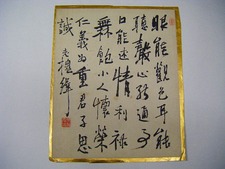 眼能觀色耳能
聽聲心能通
口能述情利祿
無飽小人懷榮
仁義為重君子思
誠